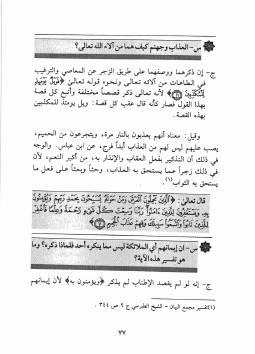 س- العذاب وجهنم كيف هما من آلاء الله تعالى؟
ج- إن ذكرهما ووصفهما على طريق الزجر عن المعاصي والترغيب
في الطاعات من آلائه تعالى ونحوه قوله تعالى ﴿وَيْلٌ يَوْمَئِذٍ
لِّلْمُكَذِّبِينَ﴾ لأنه تعالى ذكر قصصاً مختلفة وأتبع كل قصة
بهذا القول فصار كأنه قال عقب كل قصة: ويل يومئذ للمكذبين
بهذه القصة.
وقيل: معناه أنهم يعذبون بالنار مرة، ويتجرعون من الحميم،
يصب عليهم ليس لهم من العذاب أبداً فرج، عن ابن عباس. والوجه
في ذلك أن التذكير بفعل العقاب والإنذار به، من أكبر النعم، لأن
في ذلك زجراً عما يستحق به العذاب، وحثاً وبعثاً على فعل ما
يستحق به الثواب(١).
قال تعالى: ﴿الَّذِينَ يَحْمِلُونَ الْعَرْشَ وَمَنْ حَوْلَهُ يُسَبِّحُونَ بِحَمْدِ رَبِّهِمْ وَيُؤْمِنُونَ
بِهِ وَيَسْتَغْفِرُونَ لِلَّذِينَ آمَنُوا رَبَّنَا وَسِعْتَ كُلَّ شَيْءٍ رَّحْمَةً وَعِلْمًا فَاغْفِرْ
لِلَّذِينَ تَابُوا وَاتَّبَعُوا سَبِيلَكَ وَقِهِمْ عَذَابَ الْجَحِيمِ﴾
س- إن إيمانهم أي الملائكة ليس مما ينكره أحد فلماذا ذكره؟ وما
هو تفسير هذه الآية؟
ج- إنه لو لم يقصد الإطناب لم يذكر «ويؤمنون به» لأن إيمانهم
(١) تفسير مجمع البيان - الشيخ الطبرسي ج ٩ ص ٣٤٤ .
٧٧